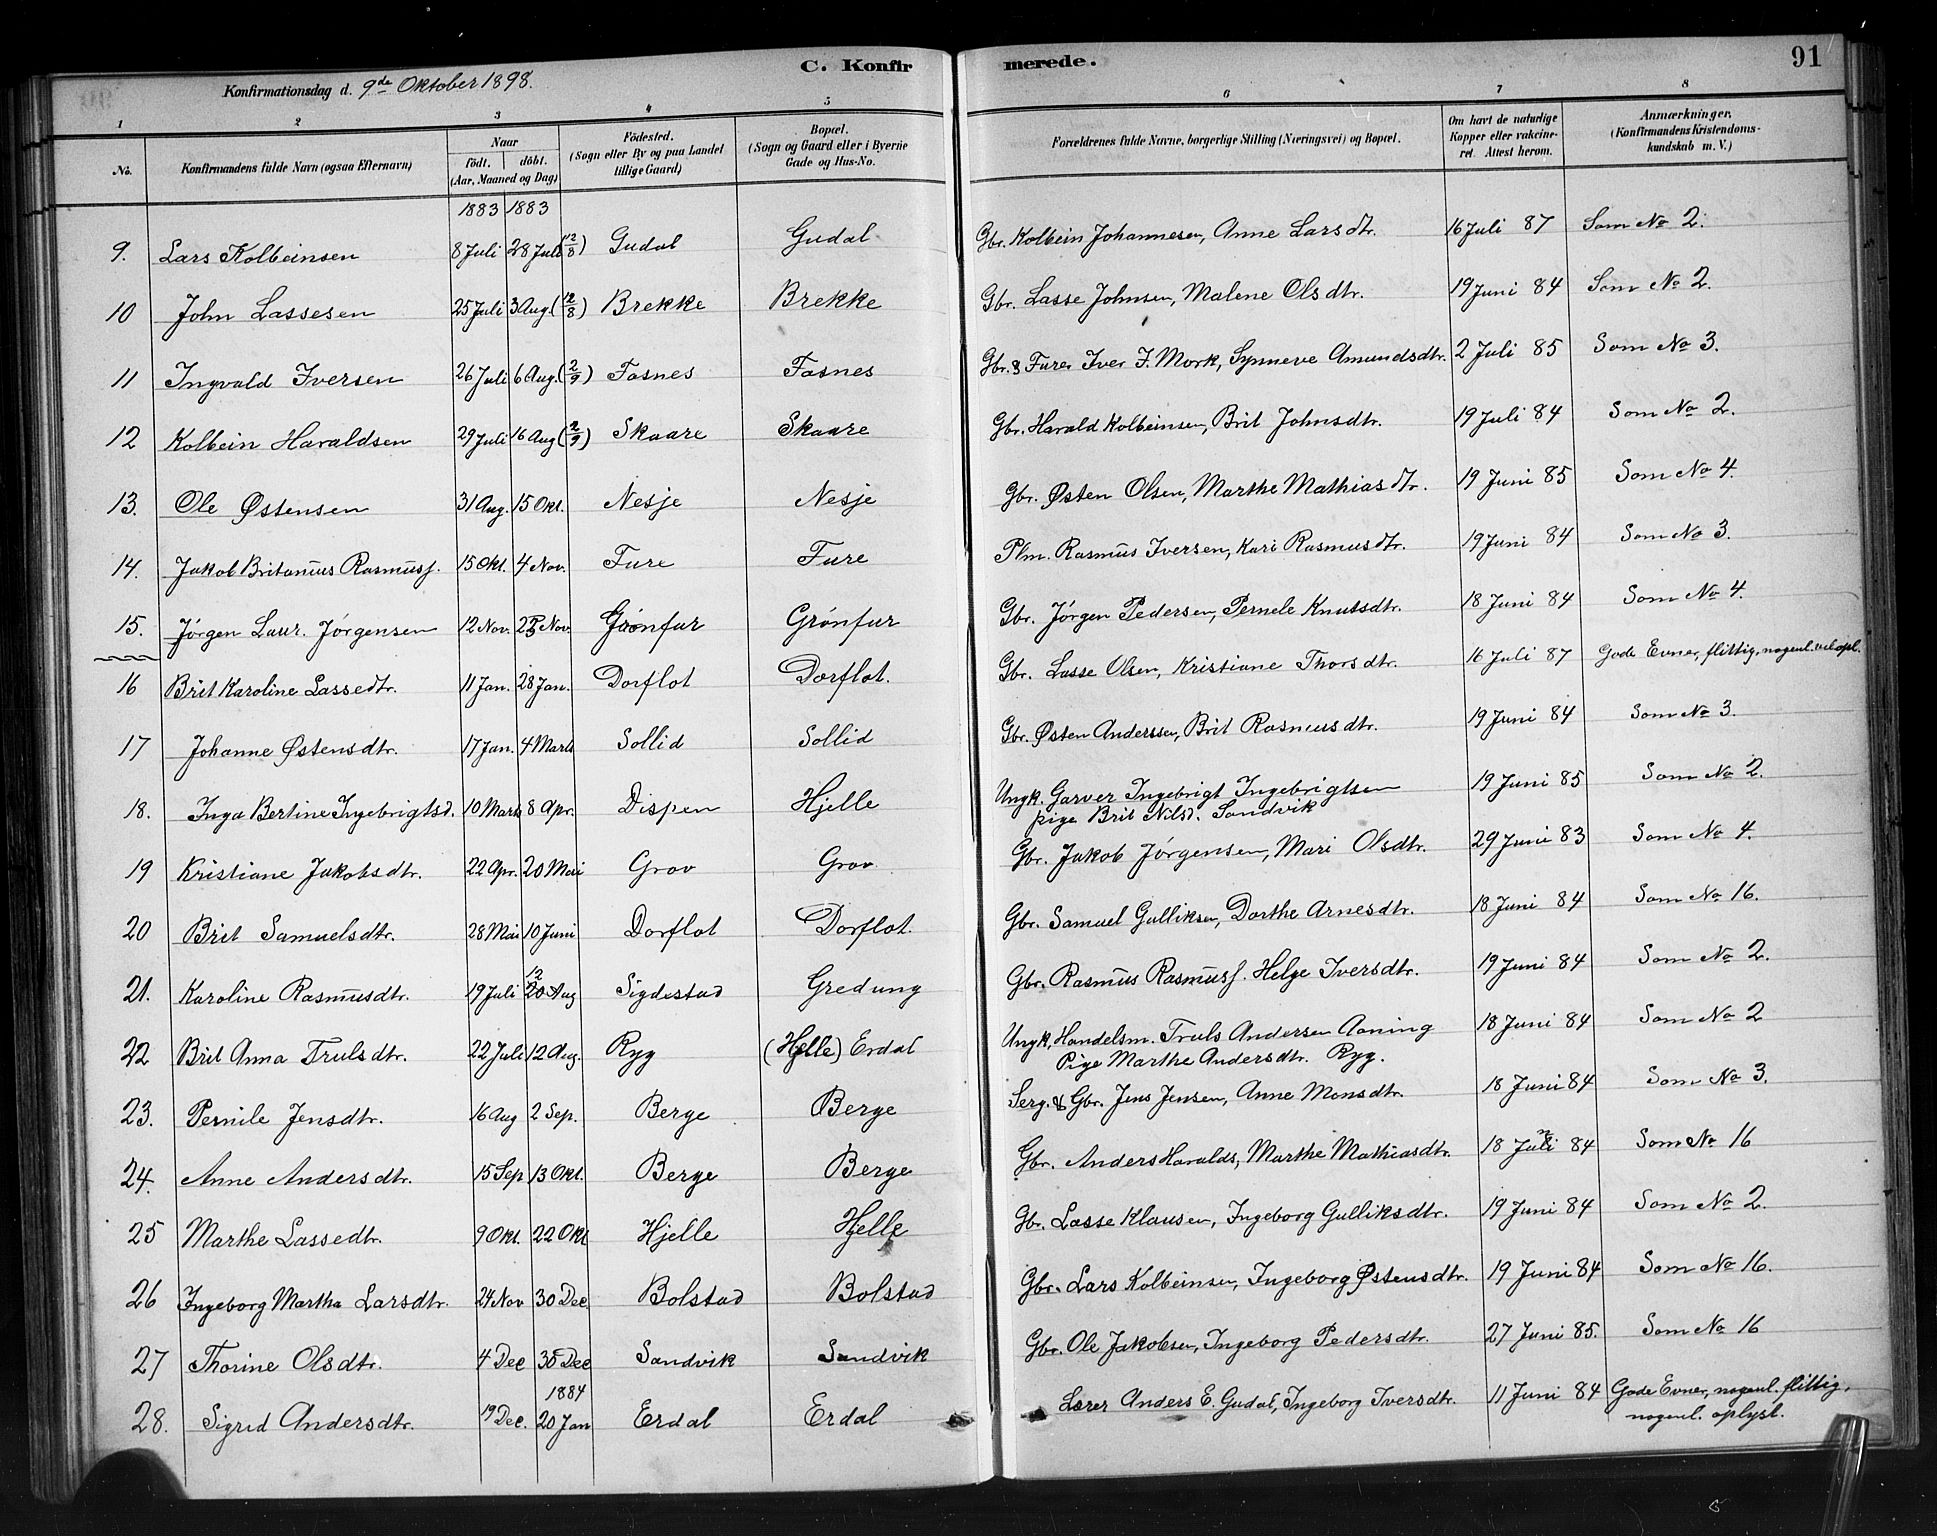 91
C. Konfirmerede.
Konfirmationsdag d. 9de Oktober 1898.
1 2 3 4 5 6 7 8
No. Konfirmandens fulde Navn (ogsaa Efternavn) Naar födt. döbt. (Aar, Maaned og Dag) Födested. (Sogn eller By og paa Landet tillige Gaard) Bopæl. (Sogn og Gaard eller i Byerne Gade og Hus-No. Forældrenes fulde Navne, borgerlige Stilling (Næringsvei) og Bopæl. Om havt de naturlige Kopper eller vakcineret. Attest herom. Anmærkninger. (Konfirmandens Kristendomskundskab m. V.)
1883 1883
9. Lars Kolbeinsen 8 Juli 28 Juli (12/8) Gudal Gudal Gbr. Kolbein Johannesen, Anne Larsdtr. 16 Juli 87 Som No 2.
10 John Lassesen 25 Juli 3 Aug. (12/8) Brekke Brekke Gbr. Lasse Johnsen, Malene Olsdtr. 19 Juni 84 Som No 2.
11 Ingvald Iversen 26 Juli 6 Aug. (2/9) Fosnes Fosnes Gbr. & Furer Iver J. Mork, Synneve Amundsdtr. 2 Juli 85 Som No 3.
12 Kolbein Haraldsen 29 Juli 16 Aug (2/9) Skaare Skaare Gbr. Harald Kolbeinsen, Brit Johnsdtr. 19 Juli 84 Som No 2.
13. Ole Østensen 31 Aug. 15 Okt. Nesje Nesje Gbr. Østen Olsen, Marthe Mathiasdtr. 19 Juni 85 Som No 4.
14. Jakob Britanius Rasmusf. 15 Okt. 4 Nov. Fure Fure Plm. Rasmus Iversen, Kari Rasmusdtr. 19 Juni 84 Som No 3.
15. Jørgen Laur. Jørgensen 12 Nov. 25 Nov. Grönfur Grönfur Gbr. Jørgen Pedersen, Pernele Knutsdtr. 18 Juni 84 Som No 4.
16 Brit Karoline Lassedtr. 11 Jan. 28 Jan. Dorflot Dorflot. Gbr. Lasse Olsen, Kristiane Thorsdtr. 16 Juli 87 Gode Evner, flittig, nogenl. vel opl.
17 Johanne Østensdtr. 17 Jan. 4 Marts Sollid Sollid Gbr. Østen Anderssen, Brit Rasmusdtr. 19 Juni 84 Som No 3.
18. Inga Bertine Ingebrigtsd. 10 Marts 8 Apr. Dispen Hjelle Ungk. Garver Ingebrigt Ingebrigtsen 19 Juni 85 Som No 2.
pige Brit Nilsd. Sandvik
19 Kristiane Jakobsdtr. 22 Apr. 20 Mai Grov Grov. Gbr. Jakob Jørgensen, Mari Olsdtr. 29 Juni 83 Som No 4.
20 Brit Samuelsdtr. 28 Mai 10 Juni Dorflot Dorflot. Gbr. Samuel Gulliksen, Dorthe Arnesdtr. 18 Juni 84 Som No 16.
12
21. Karoline Rasmusdtr. 19 Juli 20 Aug Sigdestad Gredung Gbr. Rasmus Rasmusf. Helge Iversdtr. 19 Juni 84 Som No 2.
22 Brit Anna Trulsdtr. 22 Juli 12 Aug. Ryg (Hjelle) Erdal Ungk. Handelsm. Truls Andersen Aaning 18 Juni 84 Som No 2
Pige Marthe Andersdtr. Ryg.
23. Pernile Jensdtr. 16 Aug 2 Sep. Berge Berge Serg. & Gbr. Jens Jensen, Anne Monsdtr. 18 Juni 84 Som No 3.
24. Anne Andersdtr. 15 Sep 13 Okt. Berge Berge Gbr. Anders Haralds, Marthe Mathiasdtr. 18 Juni 84 Som No 16
25 Marthe Lassedtr. 9 Okt. 22 Okt Hjelle Hjelle Gbr. Lasse Klausen, Ingeborg Gulliksdtr. 19 Juni 84 Som No 2.
26 Ingeborg Martha Larsdtr. 24 Nov 30 Dec. Bolstad Bolstad Gbr. Lars Kolbeinsen, Ingeborg Østensdtr. 19 Juni 84 Som No 16.
27 Thorine Olsdtr. 4 Dec 30 Dec Sandvik Sandvik Gbr. Ole Jakobsen, Ingeborg Pedersdtr. 27 Juni 85. Som No 16
1884
28. Sigrid Andersdtr. 19 Dec. 20 Jan Erdal Erdal Lærer Anders E. Gudal, Ingeborg Iversdtr. 11 Juni 84 Gode Evner, nogenl. flittig,
nogenl. oplyst.